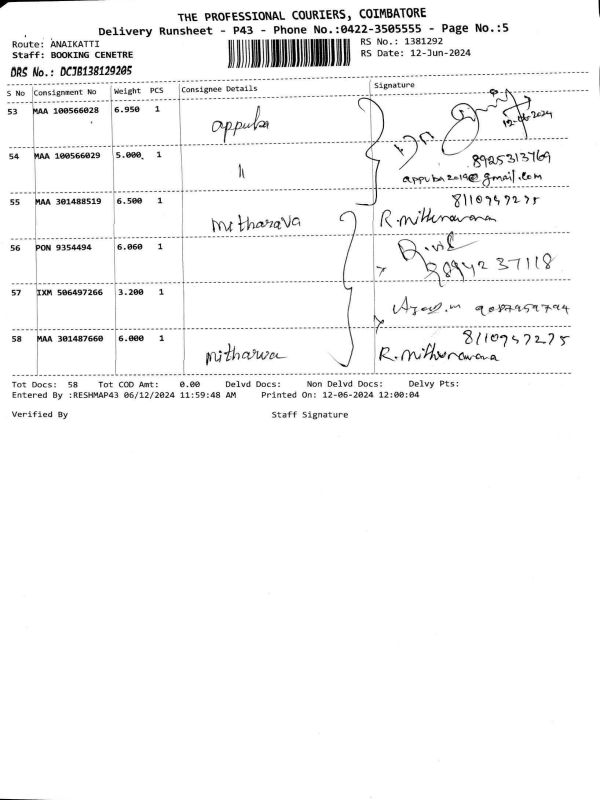 THE PROFESSIONAL COURIERS, COIMBATORE
Delivery Runsheet - P43 - Phone No.:0422-3505555 - Page No.:5
Route: ANAIKATTI
RS No.: 1381292
Staff: BOOKING CENETRE
RS Date: 12-Jun-2024
DRS No.: DCJB138129205
S No Consignment No Weight PCS Consignee Details Signature
53 MAA 100566028 6.950 1 appuba
12-06-2024
54 MAA 100566029 5.000 1 "
8925313769
appuba2019@gmail.com
55 MAA 301488519 6.500 1 mitharava
8110947275
R.mitherawana
56 PON 9354494 6.060 1
57 IXM 506497266 3.200 1
58 MAA 301487660 6.000 1 mitharwa
8110947275
R.mitherawana
Tot Docs: 58 Tot COD Amt: 0.00 Delvd Docs: Non Delvd Docs: Delvy Pts:
Entered By :RESHMAP43 06/12/2024 11:59:48 AM Printed On: 12-06-2024 12:00:04
Verified By Staff Signature